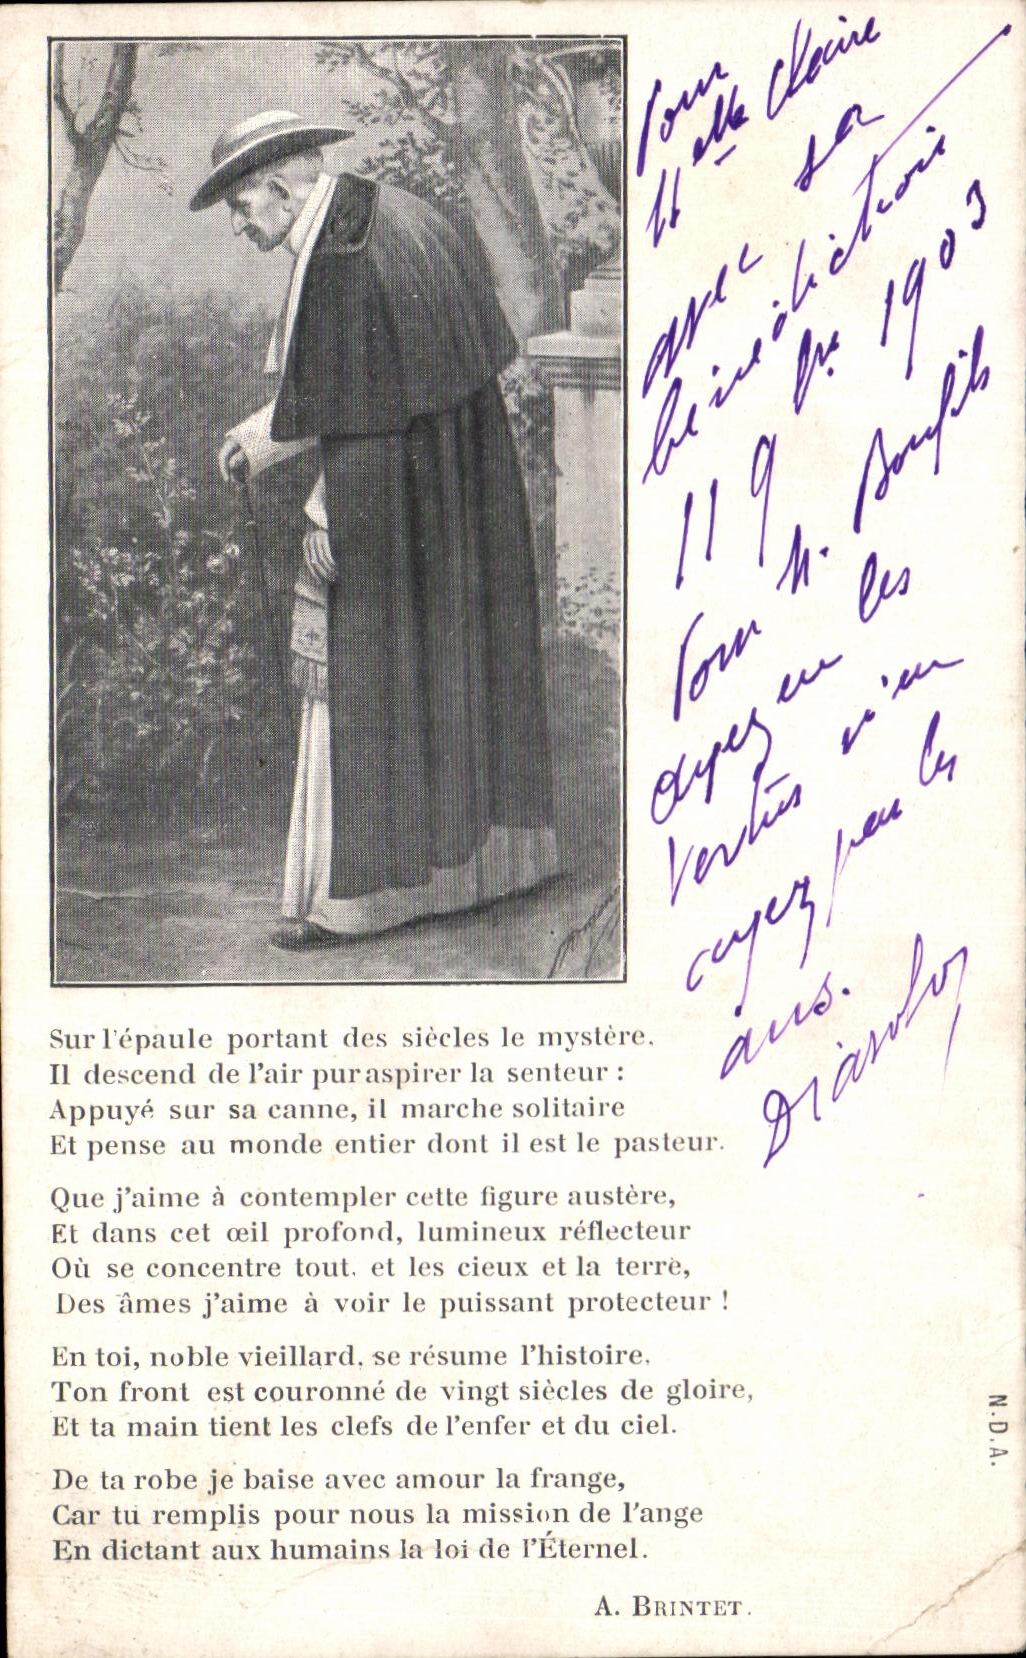 Pour
Mlle Claire
avec sa
bénédiction
11 9bre 1903
Pour M. Bonfils
ayez en les
vertus n'en
ayez pas les
ans.
Sur l'épaule portant des siècles le mystère.
Il descend de l'air pur aspirer la senteur :
Appuyé sur sa canne, il marche solitaire
Et pense au monde entier dont il est le pasteur.
Que j'aime à contempler cette figure austère,
Et dans cet œil profond, lumineux réflecteur
Où se concentre tout. et les cieux et la terre,
Des âmes j'aime à voir le puissant protecteur !
En toi, noble vieillard, se résume l'histoire.
Ton front est couronné de vingt siècles de gloire,
Et ta main tient les clefs de l'enfer et du ciel.
De ta robe je baise avec amour la frange,
Car tu remplis pour nous la mission de l'ange
En dictant aux humains la loi de l'Éternel.
A. BRINTET.
N.D.A.